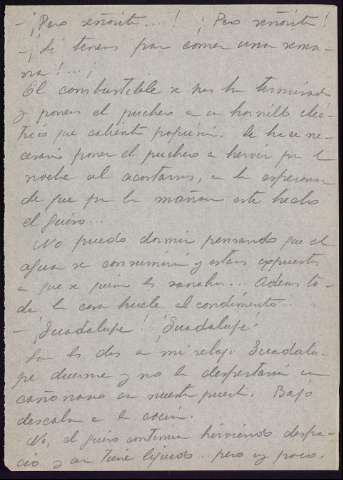 - ¡Pero señorito....! ¡Pero señorito!
- ¡Si tenemos para comer una sema-
na!...¡
El combustible se nos ha terminado
y ponemos el puchero a un hornillo eléc-
trico que calienta poquísimo. Se hace ne-
cesario poner el puchero a hervir por la
noche al acostarnos, en la esperanza
de que por la mañana esté hecho
el guiso...
No puedo dormir pensando que el
agua se consumirá y estamos expuestos
a que se queme el rancho... Además to-
da la casa huele al condimento...
- ¡Guadalupe! ¡Guadalupe!
Son las dos en mi reloj. Guadalu-
pe duerme y no la despertaría un
cañonazo en nuestra puerta. Bajo
descalza a la cocina.
No, el guiso continua hirviendo despa-
cio y aun tiene líquido.. pero ya poco.